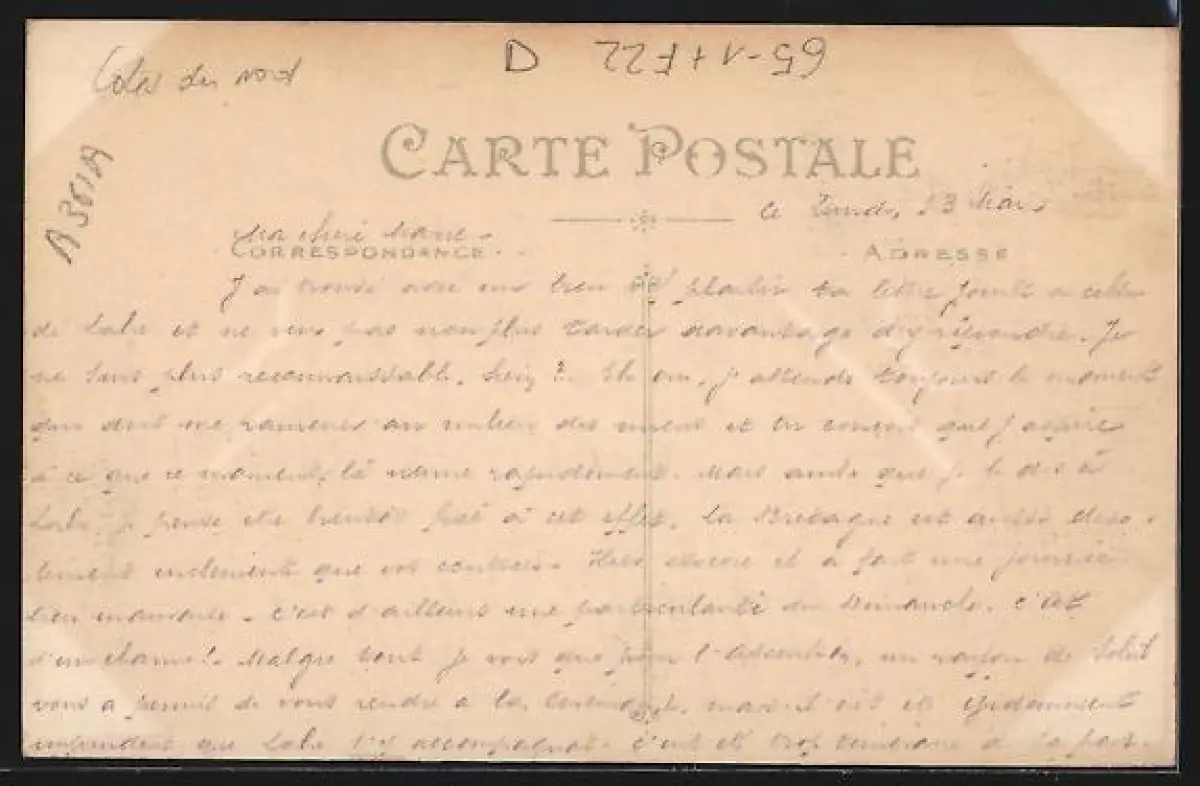 Cotes du nord
D 65-1+F22
A301A
CARTE POSTALE
le Lundi, 23 Mars
Ma chère
CORRESPONDANCE
ADRESSE
J'ai trouvé avec un bien plaisir ta lettre jointe à celle
de Lalu et ne veux pas non plus tarder davantage d'y répondre. Je
ne suis plus reconnaissable, hein ? Eh oui, j'attends toujours le moment
qui doit me ramener au milieu des miens et tu conçois que j'aspire
à ce que ce moment là vienne rapidement. Mais ainsi que je le dis à
Lalu je pense être bientôt fixé à cet effet. La Bretagne est aussi
que vos contrées. Hier encore il a fait une journée
bien mauvaise. C'est d'ailleurs une particularité du Dimanche. C'est
Malgré tout je vois que pour l'Ascension, un rayon de Soleil
vous a permis de vous rendre à la
imprudent que Lalu t'y accompagnat. C'est et trop téméraire à sa part.